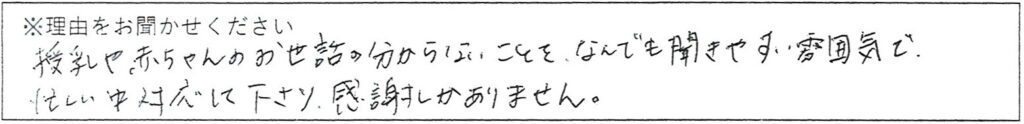 ※理由をお聞かせください
授乳や、赤ちゃんのお世話の分からないことを、なんでも聞きやすい雰囲気で、
忙しい中対応して下さり、感謝しかありません。